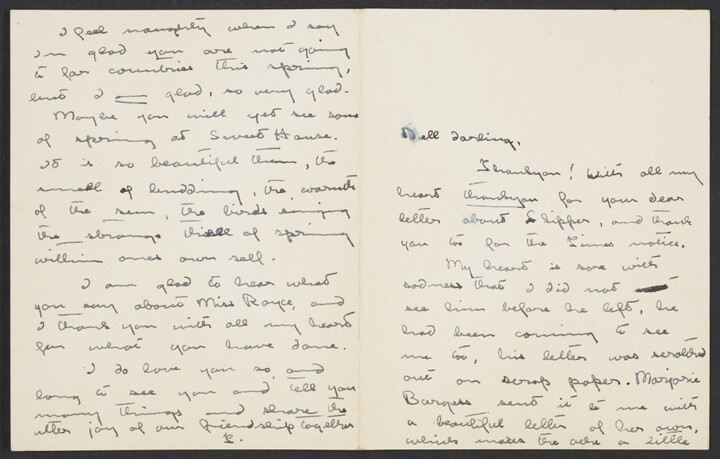 I feel naughty when I say
I'm glad you are not going
to far countries this spring,
but I am glad, so very glad.
Maybe you will yet see some
of spring at Sweet House.
It is so beautiful then, the
smell of budding, the warmth
of the sun, the birds singing
the strange thrill of spring
within ones own self.
I am glad to hear what
you say about Miss Royce, and
I thank you with all my heart
for what you have done.
I do love you so, and
long to see you and tell you
many things and share the
utter joy of our friendship together
Dell darling,
Thankyou! With all my
heart thankyou for your dear
letter about Skipper, and thank
you too for the Times notice.
My heart is sore with
sadness that I did not
see him before he left, he
had been coming to see
me too, his letter was scrawled
out on scrap paper. Marjorie
Burgess sent it to me with
a beautiful letter of her own,
which makes the ache a little